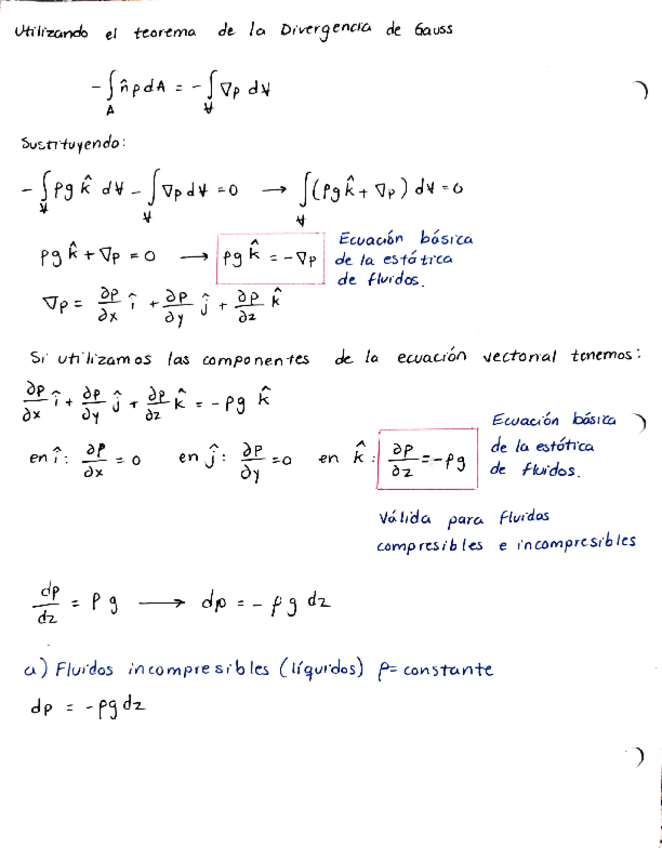 Utilizando el teorema de la Divergencia de Gauss
-∫_A n̂ p dA = -∫_V ∇p dV
Sustituyendo:
-∫_V ρg k̂ dV - ∫_V ∇p dV = 0 → ∫_V (ρg k̂ + ∇p) dV = 0
ρg k̂ + ∇p = 0 → ρg k̂ = -∇p Ecuación básica
de la estática
de fluidos.
∇p = ∂p/∂x î + ∂p/∂y ĵ + ∂p/∂z k̂
Si utilizamos las componentes de la ecuación vectorial tenemos:
∂p/∂x î + ∂p/∂y ĵ + ∂p/∂z k̂ = -ρg k̂
en î: ∂p/∂x = 0 en ĵ: ∂p/∂y = 0 en k̂: ∂p/∂z = -ρg
Ecuación básica
de la estática
de fluidos.
Válida para fluidos
compresibles e incompresibles
dp/dz = ρ g → dp = -ρ g dz
a) Fluidos incompresibles (líquidos) ρ = constante
dp = -ρg dz